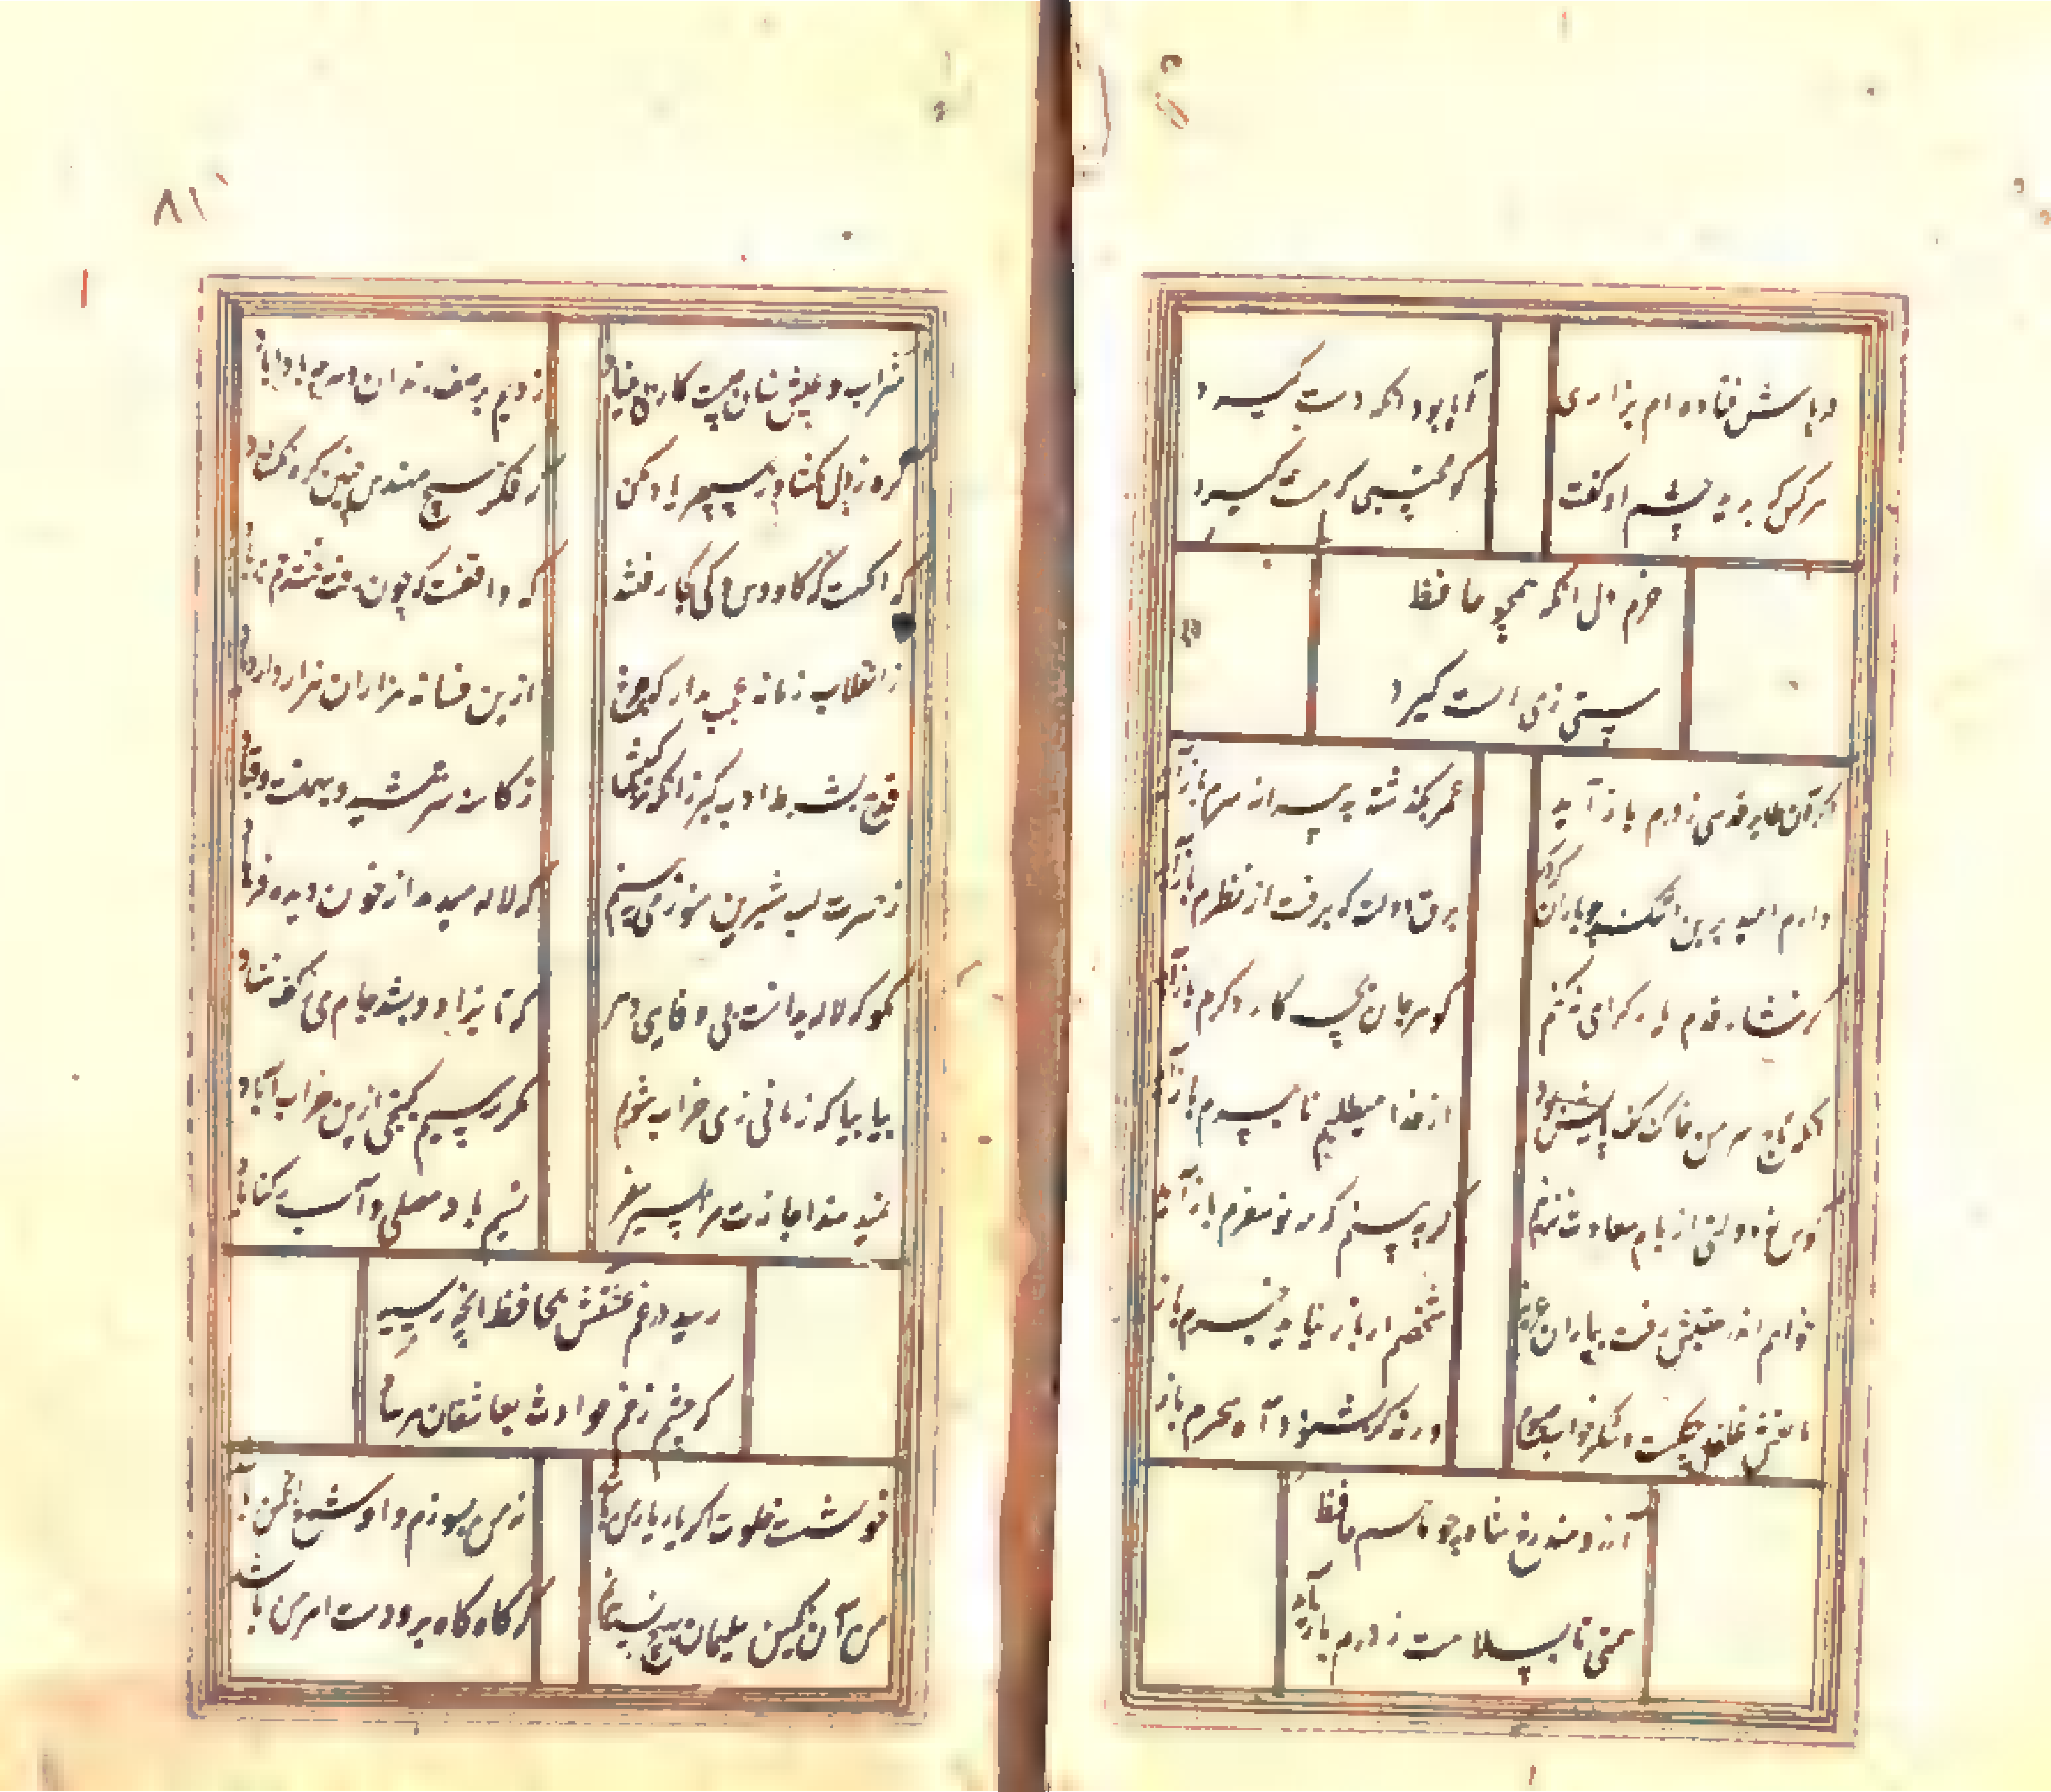 در پاش فتاده ام بزاری
آیا بود انکه دست گیرد
هرکس که بدید چشم او گفت
کو محتسبی که مست گیرد
خرم دل انکه همچو حافظ
مستی ز می الست گیرد
اگر آن طایر قدسی ز درم باز آید
عمر بگذشته به پیرانه سرم باز آید
دارم امید برین اشک چو باران که دگر
برق دولت که برفت از نظرم باز آید
گر نثار قدم یار گرامی نکنم
گوهر جان بچه کار دگرم باز آید
انکه تاج سر من خاک کف پایش بود
از خدا میطلبم تا بسرم باز آید
کوس نو دولتی از بام سعادت بزنم
گر ببینم که مه نو سفرم باز آید
خواهم اندر عقبش رفت بیاران عزیز
شخصم ار باز نیاید خبرم باز
مانعش غلغل چنگست و شکر خواب صبوح
ورنه گر بشنود آه سحرم باز
آرزومند رخ شاه چو ماهم حافظ
همتی تا بسلامت ز درم باز آید
۸۱
شراب و عیش نهان چیست کار بی بنیاد
زدیم بر صف رندان هرچه بادا باد
گره ز دل بگشا وز سپهر یاد مکن
که فکر هیچ مهندس چنین گره نگشاد
که اگهست که کاوس و کی کجا رفتند
که واقفست که چون رفت تخت جم بر باد
ز انقلاب زمانه عجب مدار که چرخ
ازین فسانه هزاران هزار دارد یاد
قدح بشرط ادب گیر زانکه ترکیبش
ز کاسه سر جمشید و بهمنست و قباد
ز حسرت لب شیرین هنوز می بینم
که لاله میدمد از خون دیده فرهاد
مگو که لاله بدانست بی وفایی دهر
که تا بزاد و بشد جام می ز کف ننهاد
بیا بیا که زمانی ز می خراب شویم
مگر رسیم بگنجی ازین خراب آباد
نمیدهند اجازت مرا بسیر سفر
نسیم باد مصلی و آب رکناباد
رسید در غم عشقش بحافظ انچه رسید
که چشم زخم حوادث بعاشقان مرساد
خوشست خلوت اگر یار یار من باشد
نه من بسوزم و او شمع انجمن باشد
من آن نگین سلیمان بهیچ نستانم
که گاه گاه برو دست اهرمن باشد